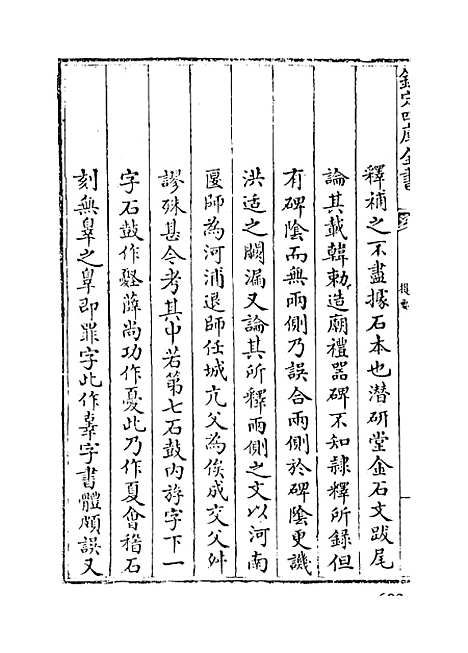 欽定四庫全書
提要
釋補之不盡據石本也潛研堂金石文跋尾
論其載韓勅造廟禮器碑不知隸釋所錄但
有碑陰而無兩側乃誤合兩側於碑陰更譏
洪造之闕漏又論其所釋兩側之文以河南
匽師為河浦退師任城亢父為俟成交父舛
謬殊甚今考其中若第七石鼓內斿字下一
字石鼓作薛尚功作憂此乃作夏會稽石
刻無辠之辠即罪字此作辜字書體頗誤又